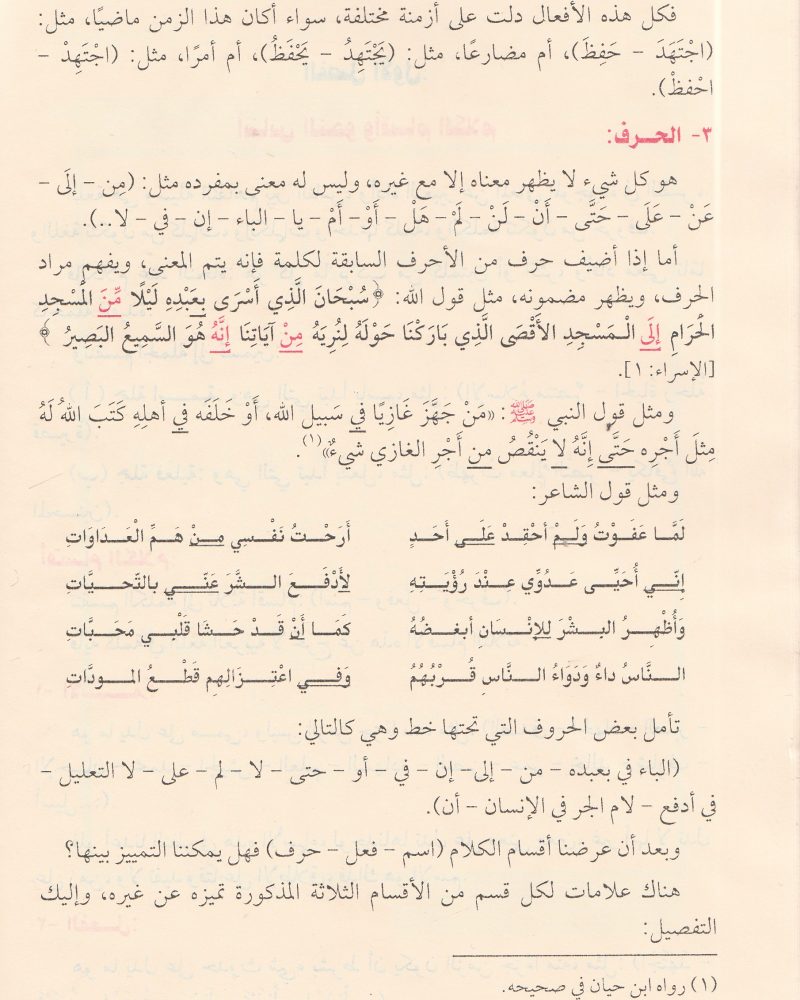 فكل هذه الأفعال دلت على أزمنة مختلفة، سواء أكان هذا الزمن ماضيًا، مثل:
(اجْتَهَدَ – حَفِظَ)، أم مضارعًا، مثل: (يَجْتَهِدُ – يَحْفَظُ)، أم أمرًا، مثل: (اجْتَهِدْ –
احْفظْ).
٣- الحرف:
هو كل شيء لا يظهر معناه إلا مع غيره، وليس له معنى بمفرده مثل: (مِن – إلَى –
عَنْ – عَلَى – حَتَّى – أَنْ – لَنْ – لَمْ – هَلْ – أَوْ – أَمْ – يا – الباء – إن – في – لا..).
أما إذا أضيف حرف من الأحرف السابقة لكلمة فإنه يتم المعنى، ويفهم مراد
الحرف، ويظهر مضمونه، مثل قول الله: ﴿سُبْحَانَ الَّذِي أَسْرَى بِعَبْدِهِ لَيْلًا مِّنَ الْمَسْجِدِ
الْحَرَامِ إِلَى الْـمَسْجِدِ الأَقْصَى الَّذِي بَارَكْنَا حَوْلَهُ لِنُرِيَهُ مِنْ آيَاتِنَا إِنَّهُ هُوَ السَّمِيعُ البَصِيرُ ﴾
[الإسراء: ١].
ومثل قول النبي ﷺ: «مَنْ جَهَّزَ غَازِيًا فِي سَبيل الله، أَوْ خَلَفَه فِي أهلِهِ كَتَبَ اللهُ لَهُ
مِثلَ أَجْرِه حَتَّى إنَّهُ لا يَنْقُصُ من أَجْرِ الغازي شيءٌ»(١).
ومثل قول الشاعر:
لَمَّا عَفَوْتُ وَلَـمْ أحْقِـدْ عَلَـى أَحَـدٍ أَرَحْـتُ نَفْـسِي مِـنْ هَـمِّ الْعَـدَاوَاتِ
إنِّـي أُحَيِّـى عَـدُوِّي عِنْـدَ رُؤْيَـتِهِ لأَدْفَـعَ الـشَّرَ عَنِّـي بالتَحـيَّاتِ
وَأُظْهِـرُ البِـشْرَ لِلإِنْسَانِ أبغـضُهُ كَمَـا أَنْ قَـدْ حَـشَا قَلْبِـي مَحَـبَّاتِ
الـنَّاسُ داءٌ وَدَوَاءُ الـنَّاسِ قُـرْبُهُمُ وَفِـي اعْتِـزَالِهِم قَطْـعُ المـودَّاتِ
تأمل بعض الحروف التي تحتها خط وهي كالتالي:
(الباء في بعبده – من – إلى– إن – في – أو – حتى – لا – لم – على – لا التعليل –
في أدفع – لام الجر في الإنسان – أن).
وبعد أن عرضنا أقسام الكلام (اسم – فعل – حرف) فهل يمكننا التمييز بينها؟
هناك علامات لكل قسم من الأقسام الثلاثة المذكورة تميزه عن غيره، وإليك
التفصيل:
(١) رواه ابن حيان في صحيحه.